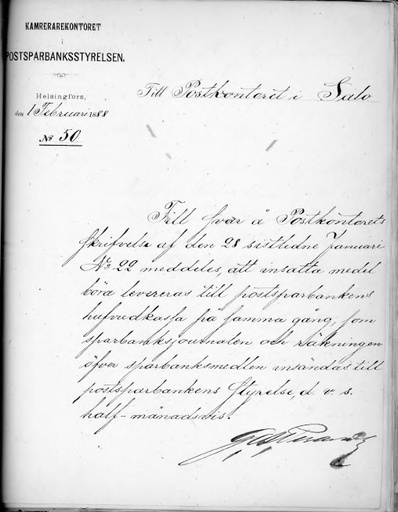 KAMRERAREKONTORET
i
POSTSPARBANKSSTYRELSEN.
Helsingfors,
den 1 Februari 1888
No 50
Till Postkontoret i Salo
Till svar å Postkontorets
skrifvelse af den 28 sistlidne Januari
No 22 meddeles, att insatta medel
böra levereras till postsparbankens
hufvudkassa på samma gång, som
sparbanksjournalen och räkningen
öfver sparbanksmedlen insändas till
postsparbankens Styrelse, d. v. s.
half-månadsvis.